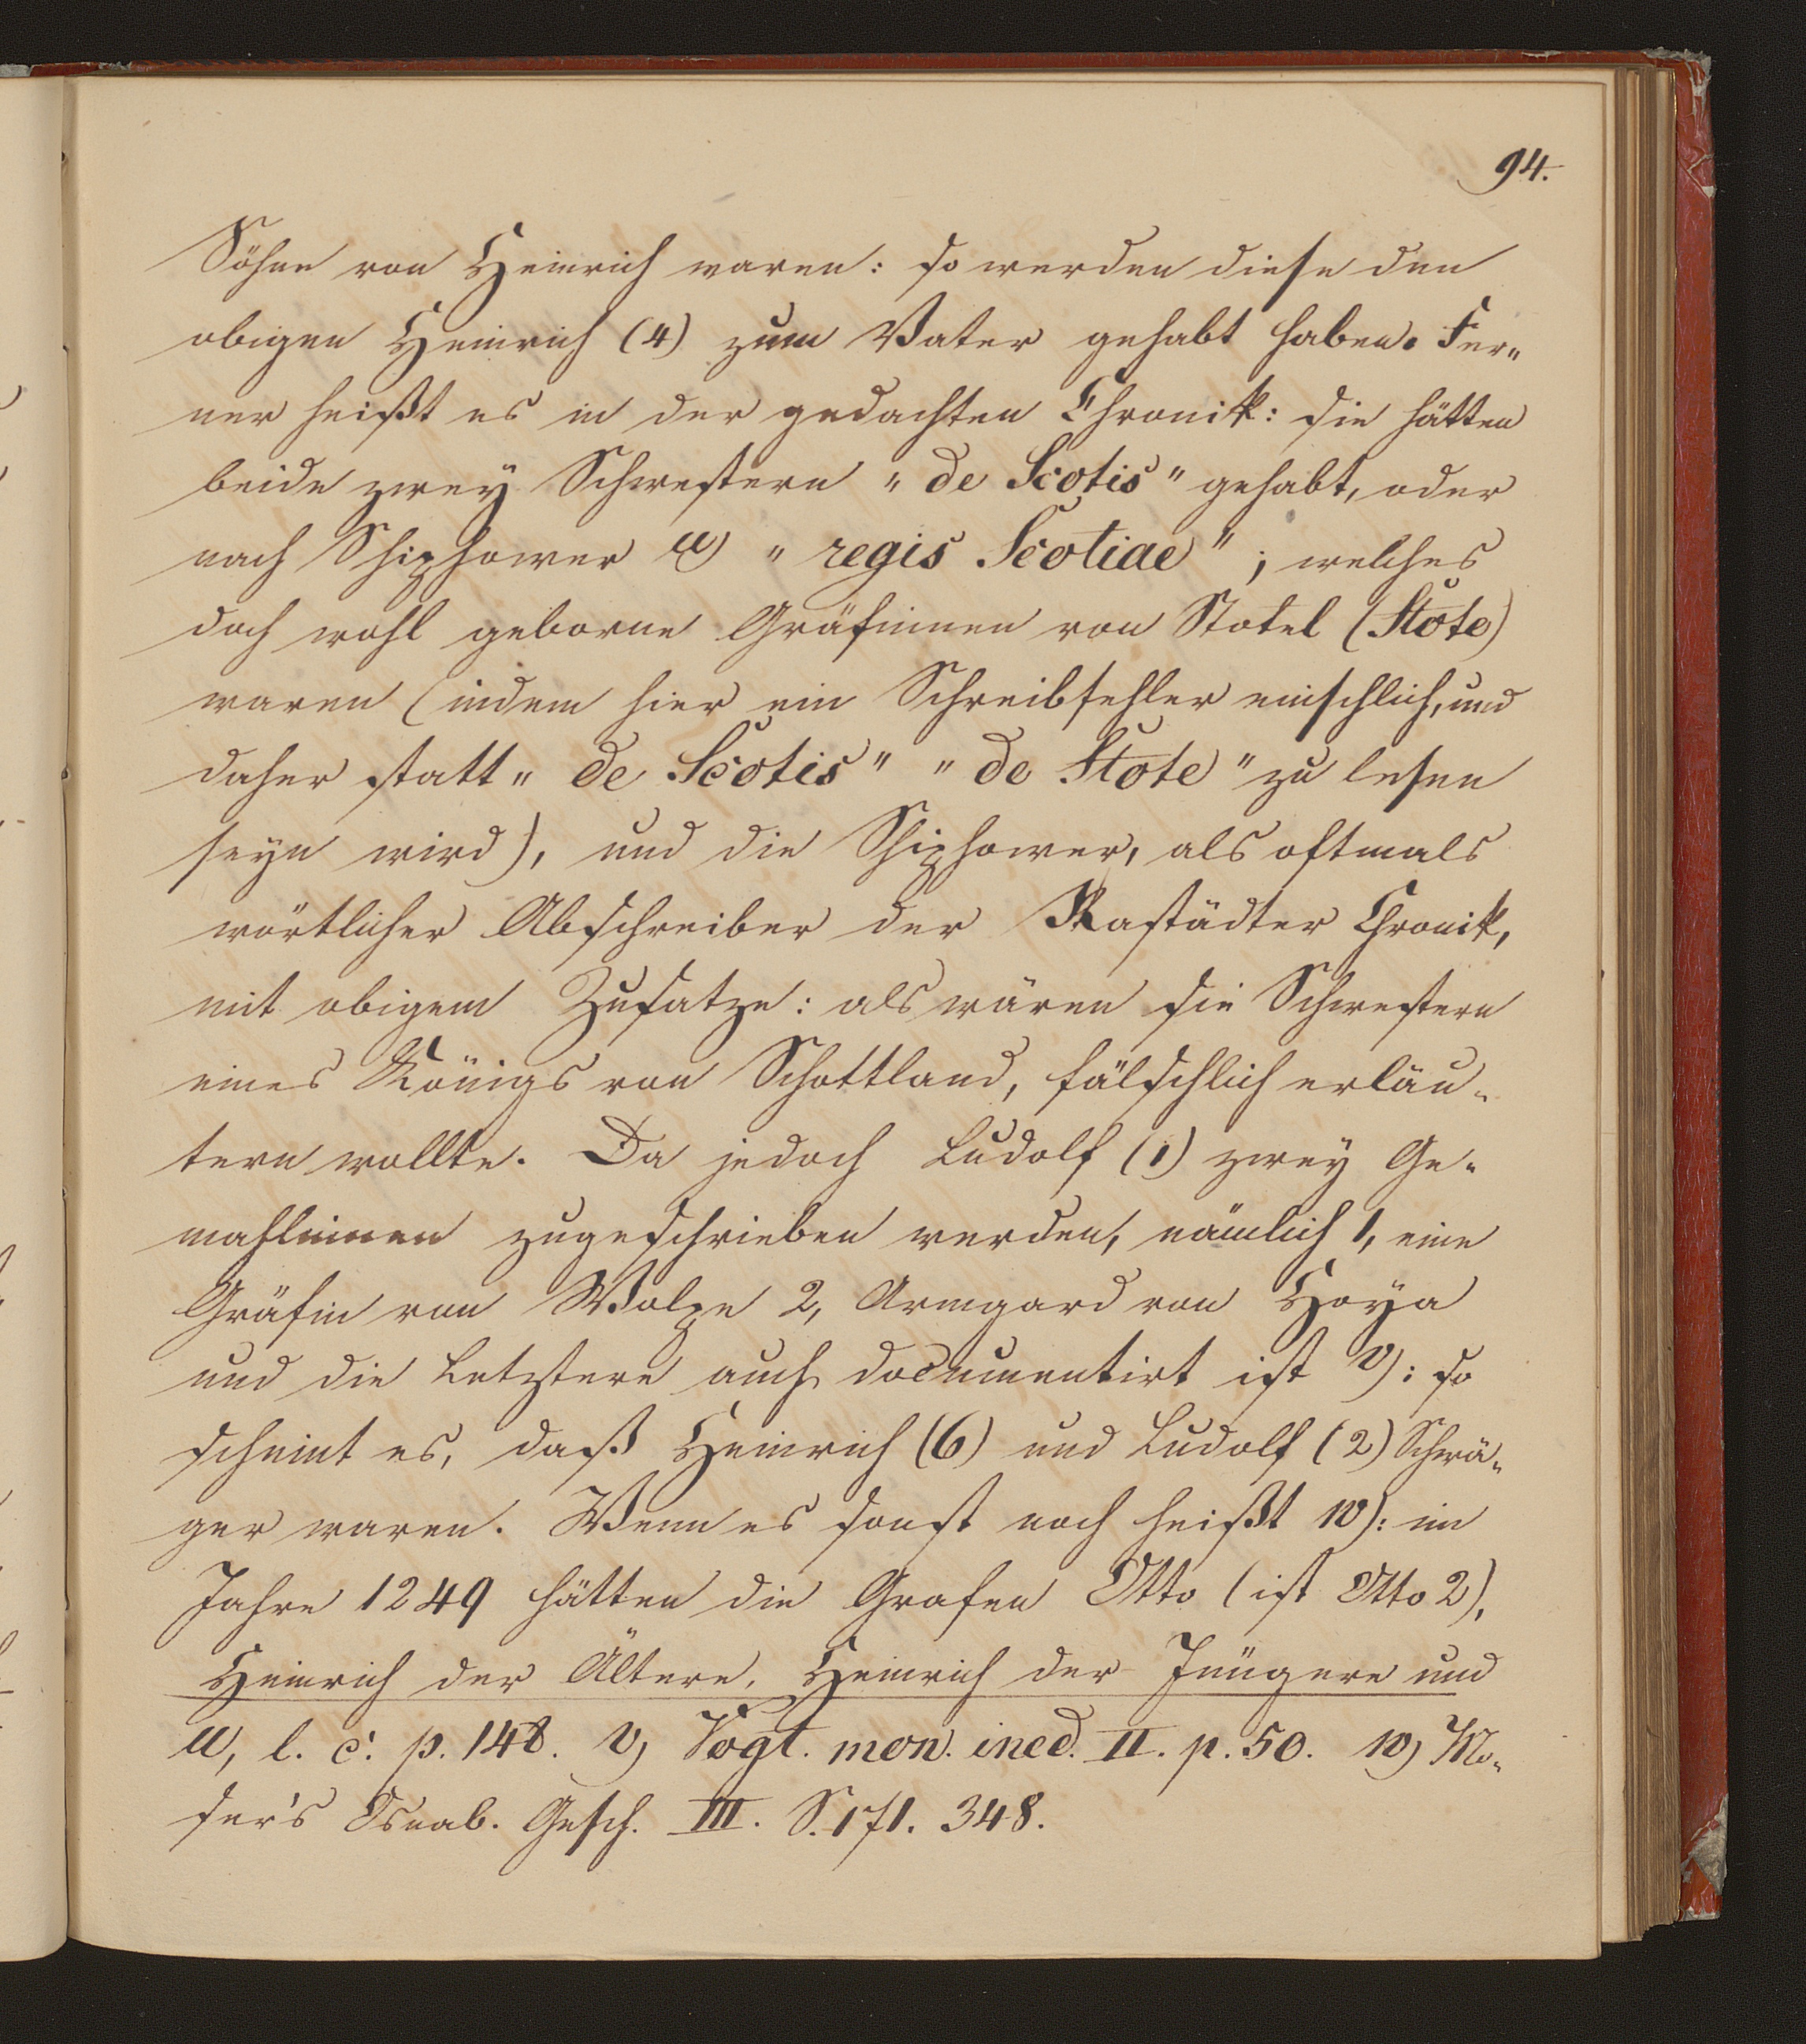 94.
Söhne von Heinrich waren: so werden diese den
obigen Heinrich (4) zum Vater gehabt haben. Fer„
ner heißt es in der gedachten Chronik: sie hätten
beide zwey Schwestern „de Scotis" gehabt, oder
nach Shiphower u) „regis Scotiae"; welches
doch wohl geborne Gräfinnen von Stotel (Stote)
waren (indem hier ein Schreibfehler einschlich, und
daher statt „de Scotis" „de Stote" zu lesen
seyn wird), und die Shiphower, als oftmals
wörtlicher Abschreiber der Rastädter Chronik,
mit obigem Zusatze: als wären sie Schwestern
eines Königs von Schottland, fälschlich erläu„
tern wollte. Da jedoch Ludolf (1) zwey Ge„
mahlinnen zugeschrieben werden, nämlich 1, eine
Gräfin von Wolpe 2, Armgard von Hoya
und die Letztere auch documentirt ist v): so
scheint es, daß Heinrich (6) und Ludolf (2) Schwä„
ger waren. Wenn es sonst noch heißt w): im
Jahre 1249 hätten die Grafen Otto (ist Otto 2),
Heinrich der Ältere, Heinrich der Jüngere und
u, l. c. p. 148. v) Vogt. mon. ined. II. p. 50. w) Mö„
ser's Osnab. Gesch. III. S. 171. 348.